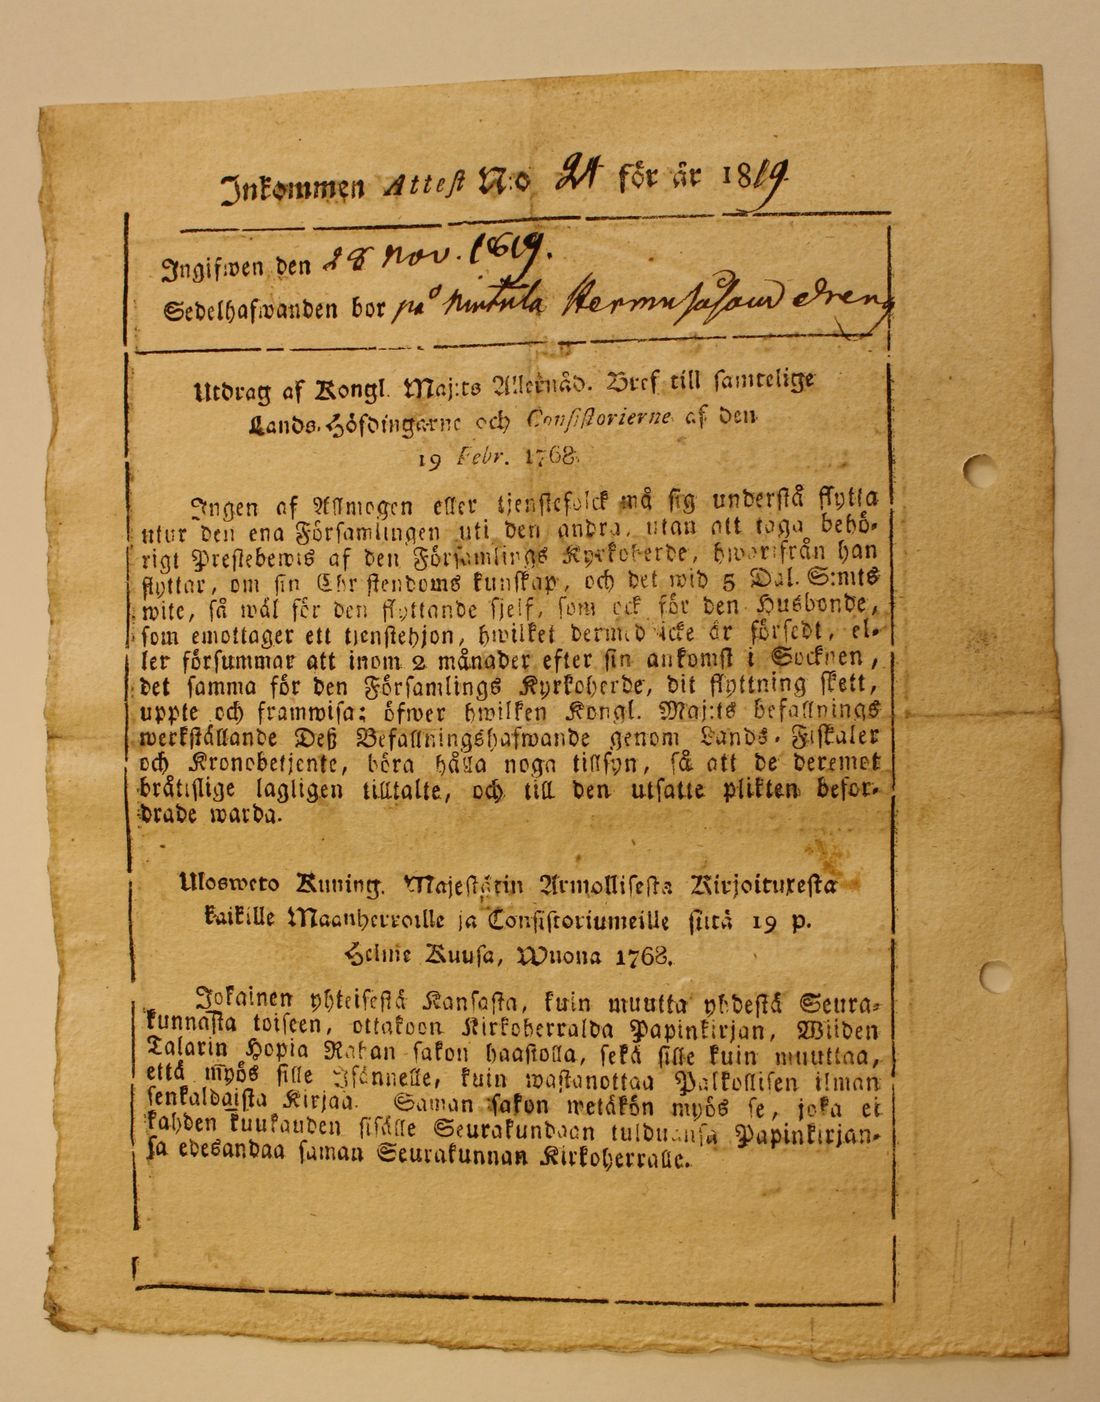 Inkommen Attest N:o 24 för år 1819.
Ingifwen den 28 Nov. 1819.
Sedelhafwanden bor på dreng
Utdrag af Kongl. Maj:ts Allernåd. Bref till samtelige
Lands-Höfdingarne och Consistorierne af den
19 Febr. 1768.
Ingen af Allmogen eller tjenstefolck må sig understå flytta
utur den ena Församlingen uti den andra, utan att taga behö-
rigt Prestebewis af den Församlings Kyrkoherde, hwarifrån han
flyttar, om sin Christendoms kunskap, och det wid 5 Dal. S:mts
wite, så wäl för den flyttande sjelf, som ock för den Husbonde,
som emottager ett tjenstehjon, hwilket dermed icke är försedt, el-
ler försummar att inom 2 månader efter sin ankomst i Socknen,
det samma för den Församlings Kyrkoherde, dit flyttning skett,
uppte och framwisa; öfwer hwilken Kongl. Maj:ts befallnings
werkställande Deß Befallningshafwande genom Lands-Fiskaler
och Kronobetjente, böra hålla noga tillsyn, så att de deremot
bråtislige lagligen tilltalte, och till den utsatte plikten befor-
drade warda.
Ulosweto Kuning. Majestätin Armollisesta Kirjoituxesta
kaikille Maanherroille ja Consistoriumeille siitä 19 p.
Helme Kuusa, Wuona 1768.
Jokainen yhteisestä Kansasta, kuin muutta yhdestä Seura-
kunnasta toiseen, ottakoon Kirkoherralda Papinkirjan, Wiiden
Talarin Hopia Rahan sakon haastolla, sekä sille kuin muuttaa,
että myös sille Isännelle, kuin wastanottaa Palkollisen ilman
senkaldaista Kirjaa. Saman sakon wetäkön myös se, joka ei
kahden kuukauden sisälle Seurakundaan tulduansa Papinkirjan-
sa edesandaa saman Seurakunnan Kirkoherralle.